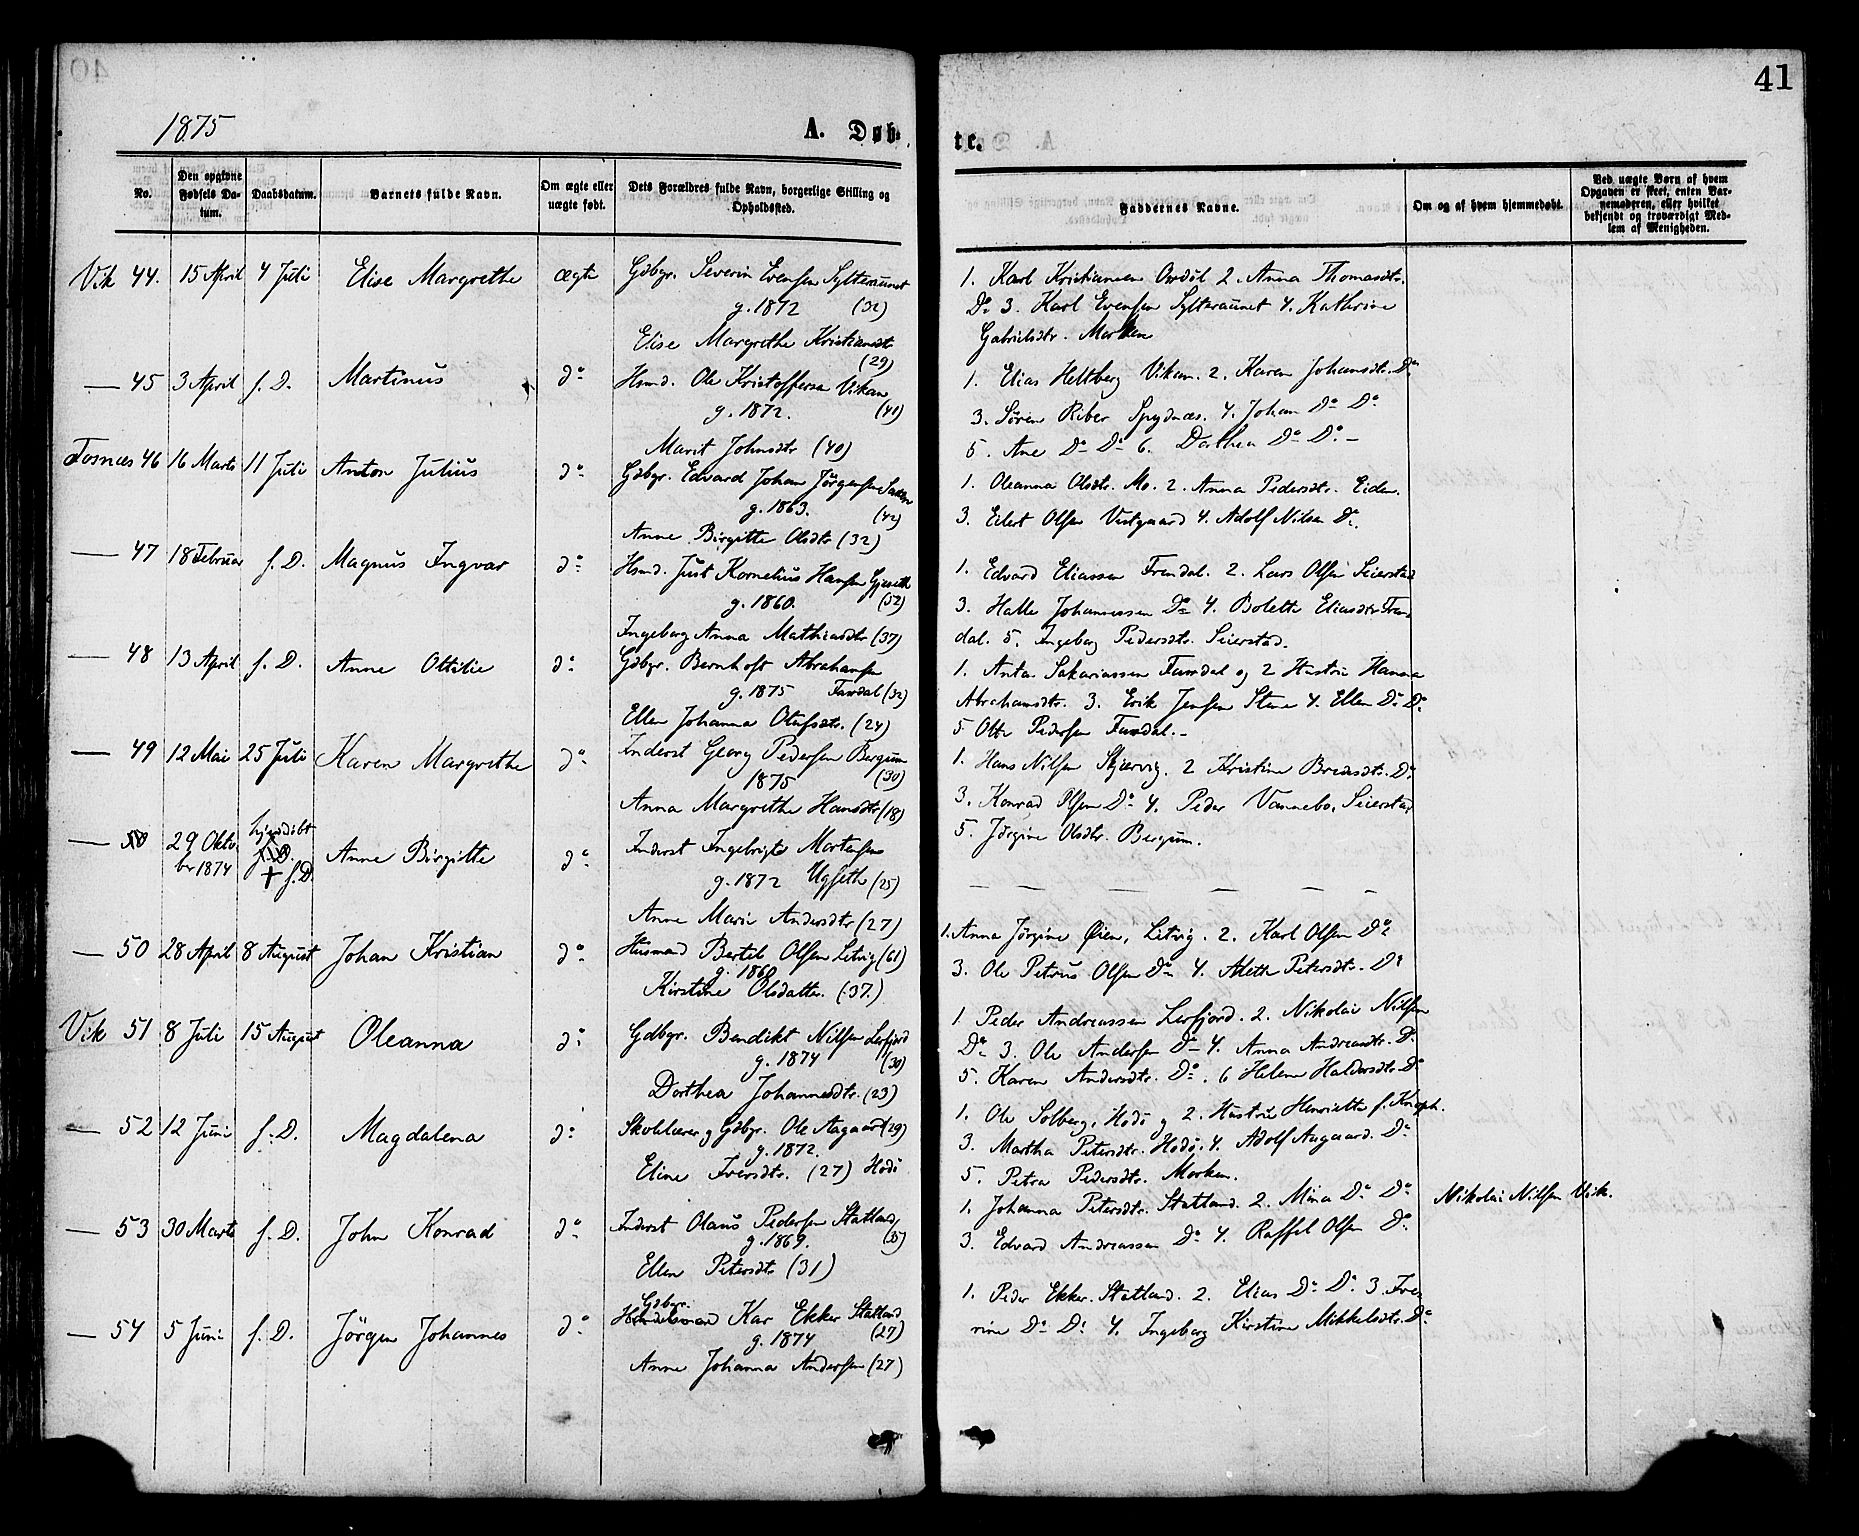 40
41
1875
A. Døb-
te.
No.
Den opgivne Fødsels Da-
tum.
Daabsdatum.
Barnets fulde Navn.
Om ægte eller uægte født.
Dets Forældres fulde Navn, borgerlige Stilling og Opholdssted.
Faddernes Navne.
Om og af hvem hjemmedøbt.
Ved uægte Børn af hvem Opgaven er skeet, enten Bar-
nemoderen, eller hvilket bekjendt og troværdigt Med-
lem af Menigheden.
Vik 44. 15 April 4 Juli Elise Margrethe ægte Gdbgr. Severin Evensen Sylteraunet
g. 1872 (32)
Elise Margrethe Kristiansdtr
(29)
1. Karl Kristiansen 2. Anna Thomasdtr.
Do 3. Karl Evensen Sylteraunet 4. Kathrine
Gabrielsdtr. Morken
— 45 3 April s. D. Martinus do Hsmd. Ole Kristoffersen Vikan
g. 1872. (40)
Marit Johnsdtr (40)
1. Elias Heltberg Vikan. 2. Karen Johansdtr. Do
3. Søren Riber Spydnæs. 4. Johan Do Do
5. Ane Do Do 6. Dorthea Do Do. —
Fosnæs 46 16 Marts 11 Juli Anton Julius do Gdbgr. Edvard Johan Jörgensen
g. 1863. (42)
Anne Birgitte Olsdtr (32)
1. Oleanna Olsdtr. Mo. 2. Anna Pedersdtr. Eiden.
3. Eilert Olsen Vestgaard 4. Adolf Nilsen Do.
— 47 18 Februar s. D. Magnus Ingvar do Hsmd. Just Kornelius Hansen
g. 1860. (52)
Ingeborg Anna Mathiasdtr (37)
1. Edvard Eliassen Framdal. 2. Lars Olsen Seierstad
3. Halle Johannessen Do 4. Bolette Eliasdtr Fram
dal. 5. Ingebog Pedersdtr. Seierstad.
— 48 13 April s. D. Anne Ottilie do Gdbgr. Bernhoft Abrahamsen
g. 1875 Faksdal (32)
Ellen Johanna Olufsdtr. (24)
1. Anton Sakariassen Faksdal og 2 Hustru Hanna
Abrahamsdtr. 3. Erik Jensen Stene 4. Ellen Do Do
5 Otto Pedersen Faksdal. —
— 49 12 Mai 25 Juli Karen Margrethe do Inderst Georg Pedersen Bergum
1875 (30)
Anna Margrethe Hansdtr (18)
1. Hans Nilsen Skjærvig. 2 Kristine Do
3. Konrad Olsen Do 4. Peder Vannebo, Seierstad
5. Jörgine Olsdtr. Bergum.
— 50 29 Okto
ber 1874 hjemdöbt
s. D.
+ s. D. Anne Birgitte do Inderst Ingebrigt Mortensen
g. 1872 Ugseth (25)
Anne Marie Andersdtr (27)
— — — — — — —
— 50 28 April 8 August Johan Kristian do Husmand Bertel Olsen Letvig (61)
g. 1860
Kirstine Olsdatter. (37.)
1. Anna Jörgine Öien, Letvig. 2. Karl Olsen Do
3. Ole Petrus Olsen Do 4. Aleth Petersdtr. Do
Vik 51 8 Juli 15 August Oleanna do Gdbgr. Bendikt Nilsen Lerfjord
g. 1874 (30)
Dorthea Johannesdtr. (23)
1 Peder Andreassen Lerfjord. 2. Nikolai Nilsen
Do 3. Ole Andersen Do — 4. Anna Andreasdtr. Do
5. Karen Andersdtr. Do. 6 Helene Haldorsdtr. Do
— 52 12 Juni s. D. Magdalena do Skolelærer og Gdbgr. Ole Aagaard (29)
g. 1872.
Eline Iversdtr. (27) Hodö
1. Ole Solberg, Hodö og 2. Hustru Henriette f. Knoph.
3. Martha Petersdtr. Hodö. 4. Adolf Aagaard. Do
5. Petra Pedersdtr. Morken.
— 53 30 Marts s. D. John Konrad do Inderst Olaus Pedersen Statland
g. 1869. (35)
Ellen Petersdtr (31)
1. Johanna Petersdtr. Statland. 2. Mina Do Do
3. Edvard Andreassen Do 4. Raffel Olsen Do.
Nikolai Nilsen Vik.
— 54 5 Juni s. D. Jörgen Johannes do Gdbgr.
Handelsmand Kar Ekker Statland
g. 1874 (27)
Anne Johanna Andersen (27)
1. Peder Ekker. Statland. 2. Elias Do Do. 3. Ive
rine Do Do 4. Ingeborg Kirstine Mikkelsdtr. Do